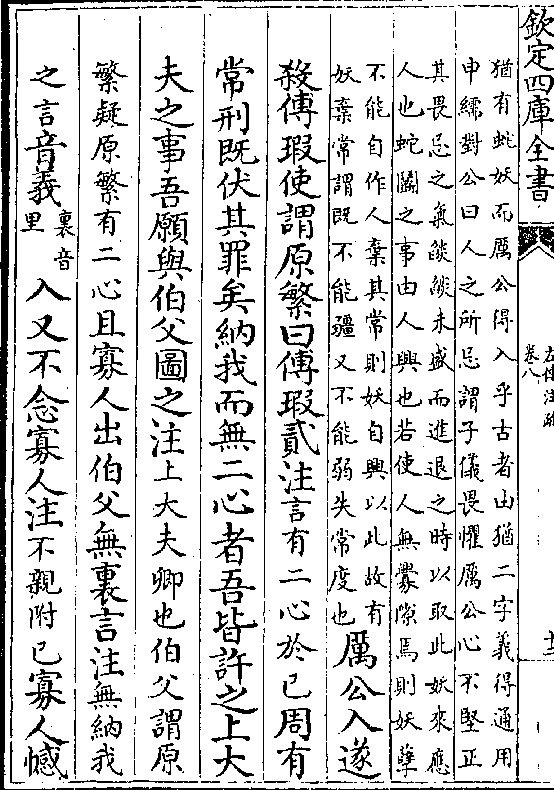 欽定四庫全書
左傳注疏
卷八
十二
猶有蛇妖而厲公得入乎古者由猶二字義得通用
申繻對公曰人之所忌謂子儀畏懼厲公心不堅正
其畏忌之氣燄燄未盛而進退之時以取此妖來應
人也蛇鬭之事由人興也若使人無釁隙焉則妖孽
不能自作人棄其常則妖自興以此故有
妖棄常謂既不能彊又不能弱失常度也
厲公入遂
殺傅瑕使謂原繁曰傅瑕貳注言有二心於已周有
常刑既伏其罪矣納我而無二心者吾皆許之上大
夫之事吾願與伯父圖之注上大夫卿也伯父謂原
繁疑原繁有二心且寡人出伯父無裏言注無納我
之言音義裏音里入又不念寡人注不親附已寡人憾